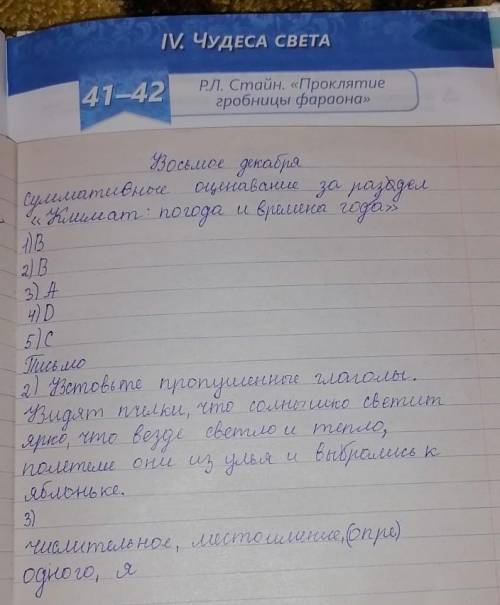 IV. ЧУДЕСА СВЕТА
41–42
Р.Л. Стайн. «Проклятие
гробницы фараона»
Восьмое декабря
Суммативное оценавание за раздел
«Климат: погода и времена года»
1) В
2) В
3) А
4) D
5) С
Письмо
2) Уставьте пропущенные глаголы.
Увидят пчелки, что солнышко светит
ярко, что везде светло и тепло,
полетели они из улья и выбрались к
яблоньке.
3)
числительное, местоимение, (опре)
одного, я